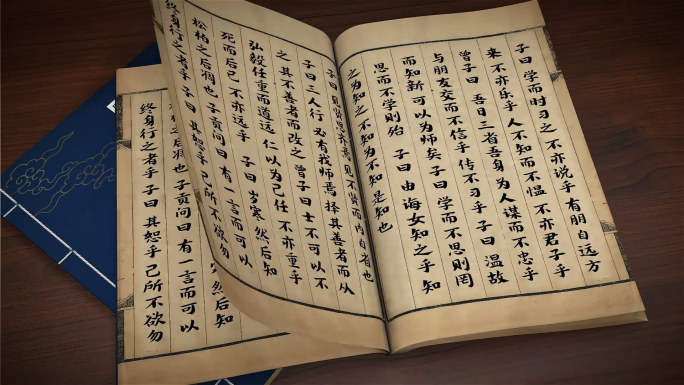 子曰 学而时习之 不亦说乎 有朋自远方
来 不亦乐乎 人不知而不愠 不亦君子乎
曾子曰 吾日三省吾身 为人谋而不忠乎
与朋友交而不信乎 传不习乎 子曰 温故
而知新 可以为师矣 子曰 学而不思则罔
思而不学则殆 子曰 由 诲女知之乎 知
之为知之 不知为不知 是知也
子曰 见贤思齐焉 见不贤而内自省也
子曰 三人行 必有我师焉 择其善者而从
之 其不善者而改之 曾子曰 士不可以不
弘毅 任重而道远 仁以为己任 不亦重乎
死而后已 不亦远乎 子曰 岁寒 然后知
松柏之后凋也 子贡问曰 有一言而可以
终身行之者乎 子曰 其恕乎 己所不欲勿
然后知
之后凋也 子贡问曰 有一言而可以
终身行之者乎 子曰 其恕乎 己所不欲勿